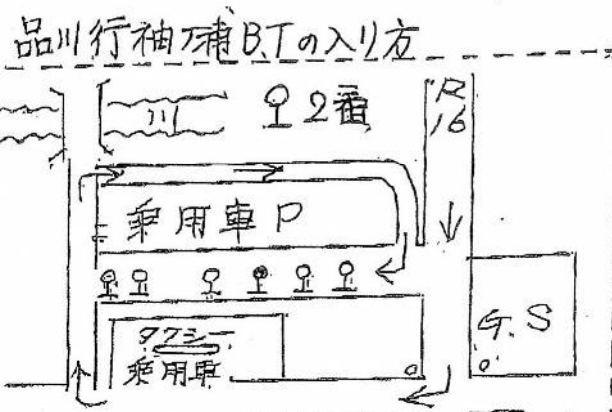 品川行袖ヶ浦B.Tの入り方
川
2番
R
16
乗用車P
タクシー
乗用車
G.S